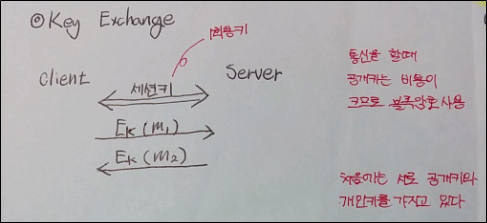 ◎ Key Exchange
1회용키
Client Server
세션키
EK (m1)
EK (m2)
통신을 할때
공개키는 비용이
크므로 블록암호 사용
처음에는 서로 공개키와
개인키를 가지고 있다